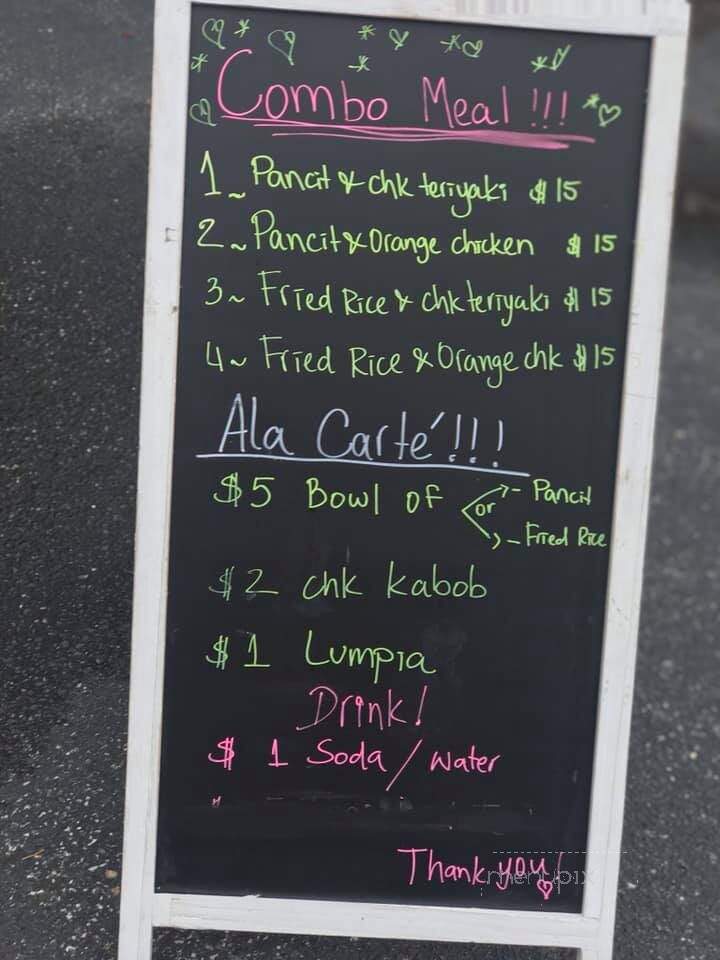 Combo Meal!!!
1~ Pancit & chk teriyaki $15
2~ Pancit & Orange chicken $15
3~ Fried Rice & chk teriyaki $15
4~ Fried Rice & Orange chk $15
Ala Carté!!!
$5 Bowl of or - Pancit
- Fried Rice
$2 chk kabob
$1 Lumpia
Drink!
$1 Soda/water
Thank you!
menupix